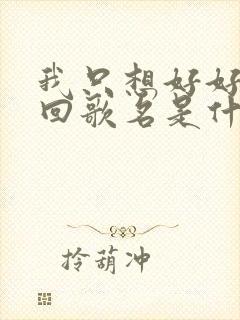 我只想好好
回歌名是什
拎葫冲